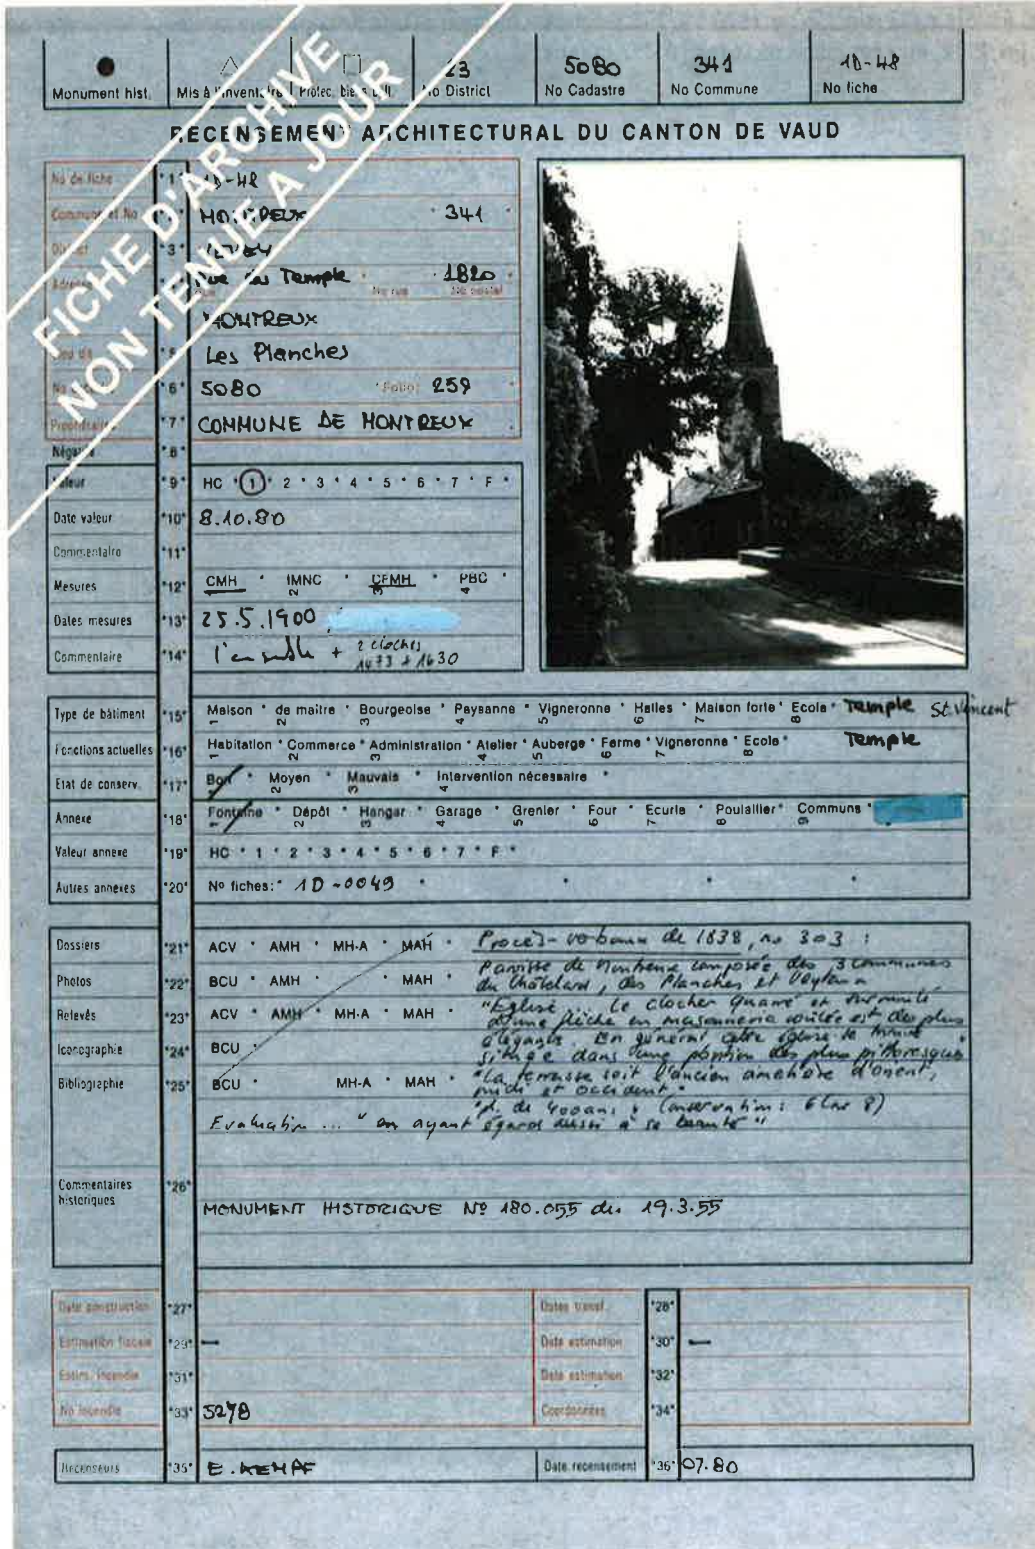 FICHE D'ARCHIVE
NON TENUE A JOUR
23 5080 341 1D-48
Monument hist. Mis à l'inventaire Protec. biens cult. No District No Cadastre No Commune No fiche
RECENSEMENT ARCHITECTURAL DU CANTON DE VAUD
No de fiche *1* 1D-48
Commune et No MONTREUX 341
*3* VEVEY
Adresse Rue du Temple 1820
Rue No rue No postal
MONTREUX
Les Planches
*6* 5080 Folio: 259
Propriétaire *7* COMMUNE DE MONTREUX
Négatif *8*
Valeur *9* HC * 1 * 2 * 3 * 4 * 5 * 6 * 7 * F *
Date valeur *10* 8.10.80
Commentaire *11*
Mesures *12* CMH * IMNC * CFMH * PBC *
2 3 4
Dates mesures *13* 25.5.1900
Commentaire *14* l'ensemble + 2 cloches
1473 + 1630
Type de bâtiment *15* Maison * de maître * Bourgeoise * Paysanne * Vigneronne * Halles * Maison forte * Ecole * Temple St. Vincent
1 2 3 4 5 6 7 8
Fonctions actuelles *16* Habitation * Commerce * Administration * Atelier * Auberge * Ferme * Vigneronne * Ecole * Temple
1 2 3 4 5 6 7 8
Etat de conserv. *17* Bon * Moyen * Mauvais * Intervention nécessaire *
2 3 4
Annexe *18* Fontaine * Dépôt * Hangar * Garage * Grenier * Four * Ecurie * Poulailler * Communs *
1 2 3 4 5 6 7 8 9
Valeur annexe *19* HC * 1 * 2 * 3 * 4 * 5 * 6 * 7 * F *
Autres annexes *20* No fiches: * 1D-0049 * * * *
Dossiers *21* ACV * AMH * MH-A * MAH * Procès-verbaux de 1838, no 303 :
Paroisse de Montreux composée des 3 communes
Photos *22* BCU * AMH * * MAH * du Châtelard, des Planches et Veytaux
"Eglise. Le clocher quarré et surmonté
Relevés *23* ACV * AMH * MH-A * MAH * d'une flèche en maçonnerie voûtée est des plus
élégants. En général cette église se trouve
Iconographie *24* BCU * située dans une position des plus pittoresques
"La terrasse soit l'ancien cimetière d'orient,
Bibliographie *25* BCU * MH-A * MAH * midi et occident"
"pl. de 400 ans ; (conservation : 6 sur 8)
Evaluation ... "en ayant égard aussi à sa beauté"
Commentaires historiques *26*
MONUMENT HISTORIQUE No 180.055 du 19.3.55
Date construction *27* Dates transf. *28*
Estimation fiscale *29* — Date estimation *30* —
Estim. incendie *31* Date estimation *32*
No incendie *33* 5278 Coordonnées *34*
Recenseurs *35* E. KEMPF Date recensement *36* 07.80